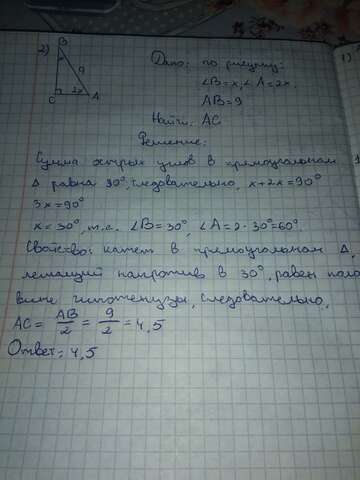 2)
B
9
C
2x
A
Дано: по рисунку:
∠B=x; ∠A=2x
AB=9
Найти: AC
Решение:
Сумма острых углов в прямоугольном
Δ равна 90°, следовательно, x+2x=90°
3x=90°
x=30°, т.е. ∠B=30°, ∠A=2·30°=60°
Свойство: катет в прямоугольном Δ,
лежащий напротив в 30°, равен поло
вине гипотенузы, следовательно,
AC= AB/2 = 9/2 = 4,5
Ответ: 4,5
1)